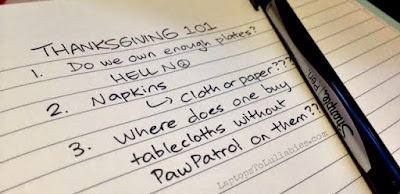 THANKSGIVING 101
1. Do we own enough plates?
HELL NO
2. Napkins
↳ Cloth or paper???
3. Where does one buy
tablecloths without
PawPatrol on them??
LaptopsToLullabies.com
Sharpie. Pen